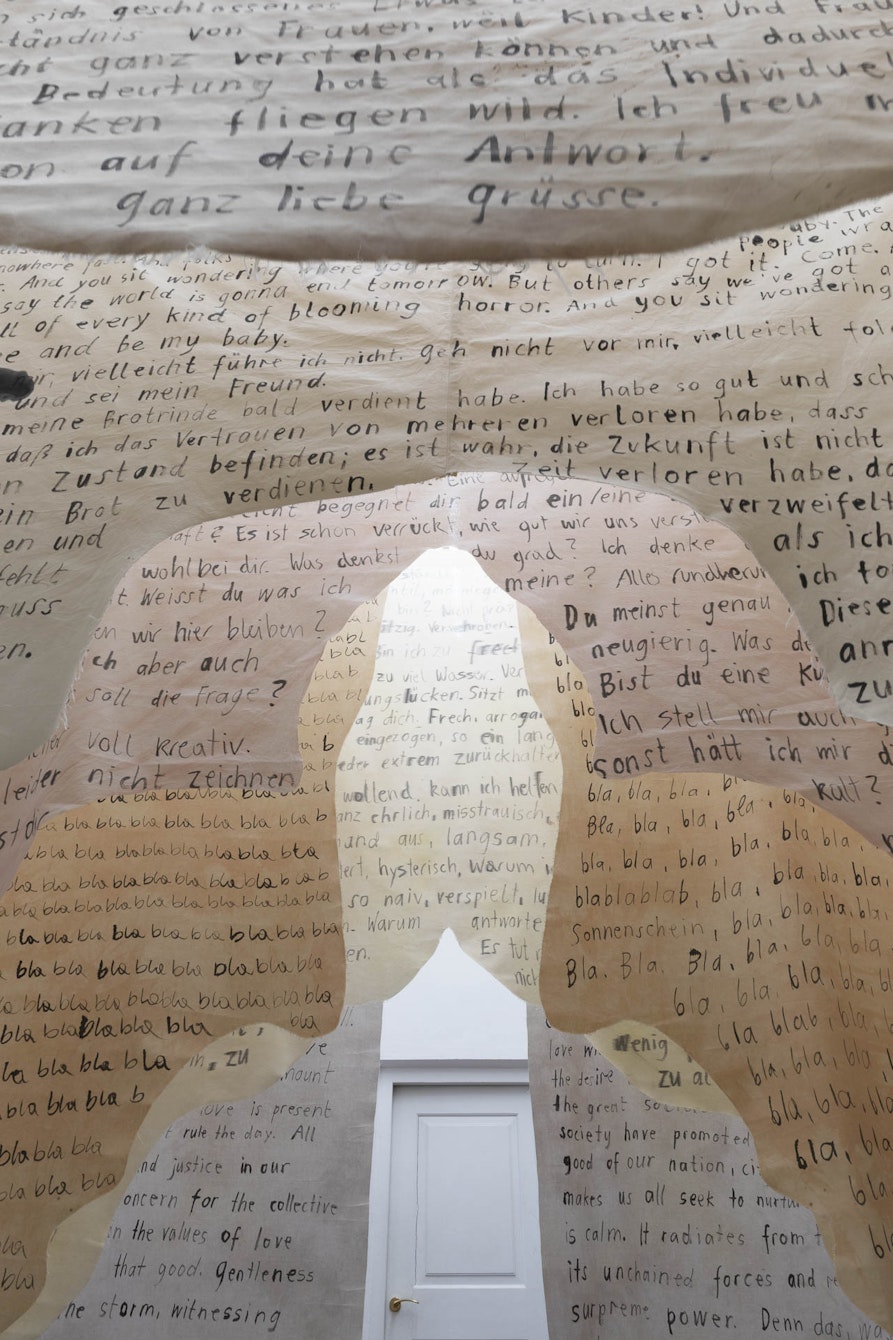 sich geschlossenes Etwas
ständnis von Frauen, weil Kinder! Und Frau
cht ganz verstehen können und dadurch
Bedeutung hat als das Individuel
danken fliegen wild. Ich freu m
on auf deine Antwort.
ganz liebe grüsse.
aby. The
People wra
nowhere
. And you sit wondering where you're going to turn. I got it. Come.
say the world is gonna end tomorrow. But others say we've got a
ll of every kind of blooming horror. And you sit wondering
e and be my baby.
mir, vielleicht führe ich nicht. Geh nicht vor mir, vielleicht fol
und sei mein Freund.
meine Brotrinde bald verdient habe. Ich habe so gut und sch
daß ich das Vertrauen von mehreren verloren habe, dass
n Zustand befinden; es ist wahr, die Zukunft ist nicht
ein Brot zu verdienen. Zeit verloren habe, da
en und verzweifelt
fehlt als ich
muss ich to
en. Diese
anr
zu
Eine
cht begegnet dir bald ein/eine
aft? Es ist schon verrückt, wie gut wir uns verst
wohl bei dir. Was denkst du grad? Ich denke
t. Weisst du was ich meine? Alles rundherum
en wir hier bleiben? Du meinst genau
ch aber auch neugierig. Was de
soll die Frage? Bist du eine Kü
voll kreativ. Ich stell mir auch
leider nicht zeichnen sonst hätt ich mir d
kult?
bin ich zu frech
zu viel Wasser. Ver
ungslücken. Sitzt m
ag dich. Frech, arrogan
eingezogen, so ein lang
eder extrem zurückhalten
wollend, kann ich helfen
anz ehrlich, misstrauisch,
and aus, langsam,
iert, hysterisch, Warum
so naiv, verspielt, lu
n. Warum antworte
en. Es tut
nich
in, zu
Wenig
zu al
blabl
bla bla
bla b
bla bla bla bla bla bla bla
bla bla bla bla bla bla b
bla bla bla bla bla bla bla
bla bla bla bla bla bla b
bla bla bla bla bla bla bla
bla bla bla bla bla bla
bla bla bla bla bla bla
bla bla bla bla bla bla
bla bla bla bla bla
bla bla bla bla
bla bla bla b
bla bla bla
bla bla bla
bla
bla
bla, bla, bla, bla, bla
Bla, bla, bla, bla, bla,
bla, bla, bla, bla, bla, bla,
blablablab, bla, bla, bla, bla,
Sonnenschein, bla, bla, bla, bla,
Bla. Bla. Bla, bla, bla, bla,
bla, bla, bla, bla,
bla blab, bla,
bla, bla, bla,
bla, bla, bla
bla, bla
bla
bla
ve
mount
love is present
t rule the day. All
nd justice in our
oncern for the collective
n the values of love
that good. Gentleness
ne storm, witnessing
love
the desire
the great
society have promoted
good of our nation, ci
makes us all seek to nurtu
is calm. It radiates from t
its unchained forces and re
surpreme power. Denn das, wa